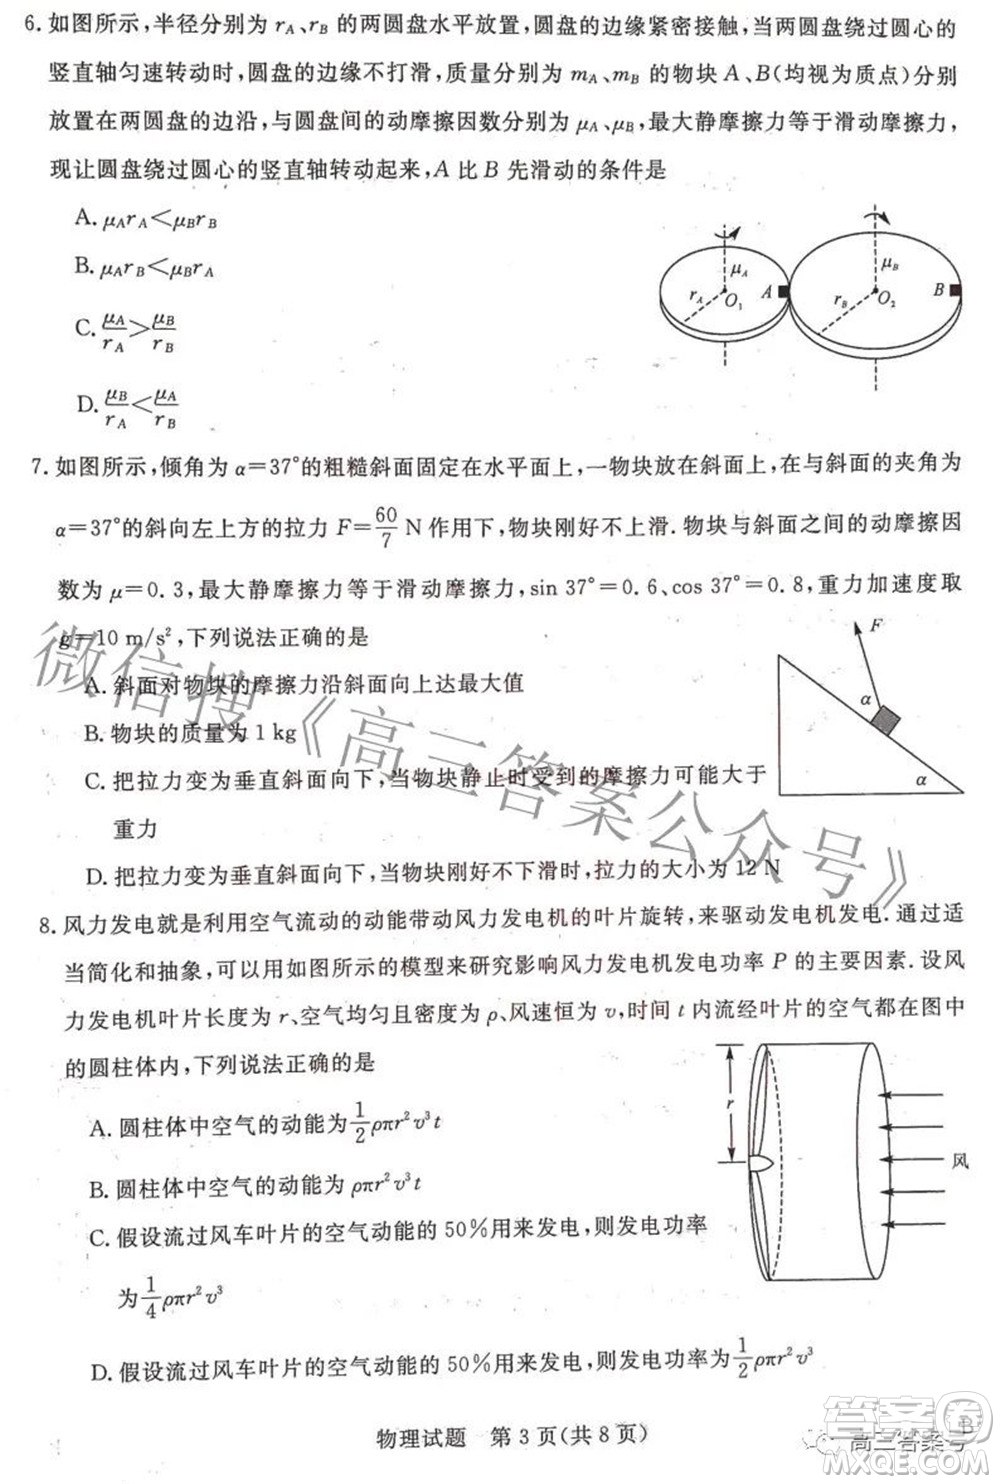 6. 如图所示,半径分别为 rA、rB 的两圆盘水平放置,圆盘的边缘紧密接触,当两圆盘绕过圆心的
竖直轴匀速转动时,圆盘的边缘不打滑,质量分别为 mA、mB 的物块 A、B(均视为质点)分别
放置在两圆盘的边沿,与圆盘间的动摩擦因数分别为 μA、μB,最大静摩擦力等于滑动摩擦力,
现让圆盘绕过圆心的竖直轴转动起来,A 比 B 先滑动的条件是
A. μA rA<μB rB
B. μA rB<μB rA
C. μA/rA>μB/rB
D. μB/rA<μA/rB
μA
rA
O1
A
μB
rB
O2
B
7. 如图所示,倾角为 α=37°的粗糙斜面固定在水平面上,一物块放在斜面上,在与斜面的夹角为
α=37°的斜向左上方的拉力 F=60/7 N 作用下,物块刚好不上滑. 物块与斜面之间的动摩擦因
数为 μ=0.3,最大静摩擦力等于滑动摩擦力,sin 37°=0.6、cos 37°=0.8,重力加速度取
g=10 m/s²,下列说法正确的是
A. 斜面对物块的摩擦力沿斜面向上达最大值
B. 物块的质量为 1 kg
C. 把拉力变为垂直斜面向下,当物块静止时受到的摩擦力可能大于
重力
D. 把拉力变为垂直斜面向下,当物块刚好不下滑时,拉力的大小为 12 N
F
α
α
8. 风力发电就是利用空气流动的动能带动风力发电机的叶片旋转,来驱动发电机发电. 通过适
当简化和抽象,可以用如图所示的模型来研究影响风力发电机发电功率 P 的主要因素. 设风
力发电机叶片长度为 r、空气均匀且密度为 ρ、风速恒为 v,时间 t 内流经叶片的空气都在图中
的圆柱体内,下列说法正确的是
A. 圆柱体中空气的动能为 1/2 ρπr²v³t
B. 圆柱体中空气的动能为 ρπr²v³t
C. 假设流过风车叶片的空气动能的 50%用来发电,则发电功率
为 1/4 ρπr²v³
D. 假设流过风车叶片的空气动能的 50%用来发电,则发电功率为 1/2 ρπr²v³
r
风
微信搜《高三答案公众号》
物理试题 第 3 页(共 8 页)
B
高三答案号
答案圈
MXQE.COM